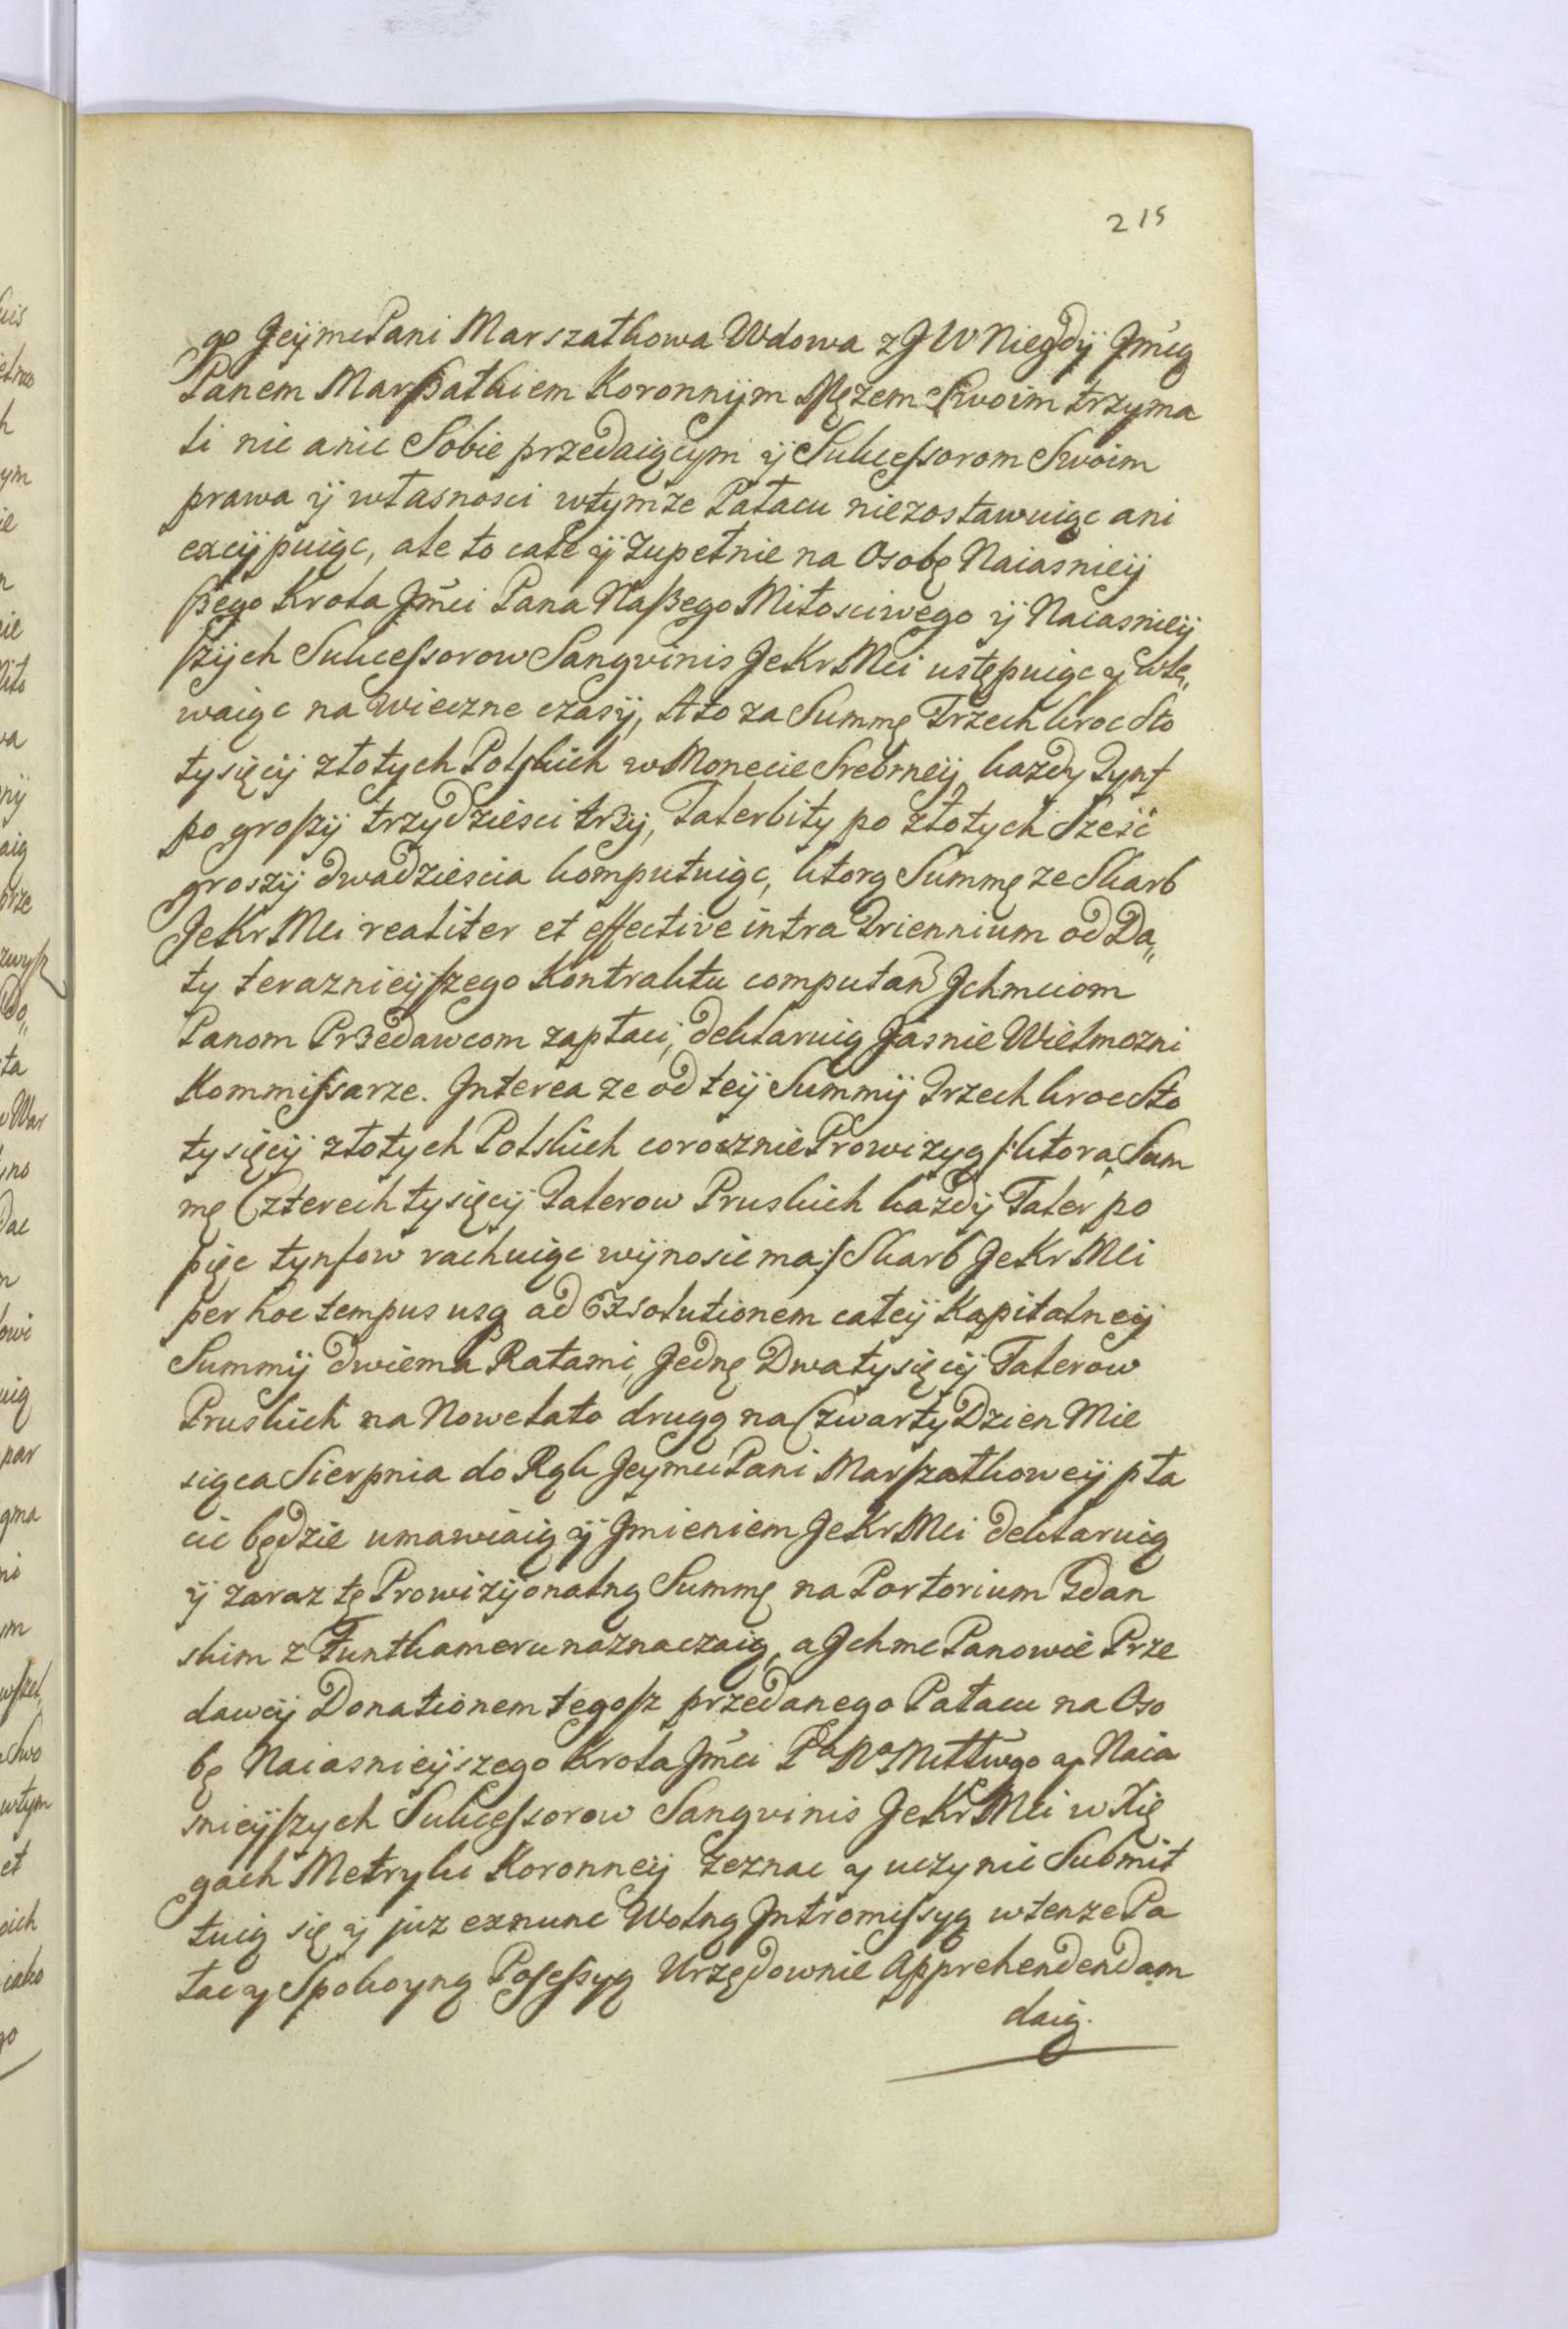 215
go Jeÿmc Pani Marszałkowa Wdowa z JW Niegdÿ Jmcią
Panem Marszałkiem Koronnÿm Mężem Swoim trzyma
li nic a nic Sobie przedaiącym ÿ Sukcessorom Swoim
prawa ÿ własnosci wtymze Pałacu niezostawuiąc ani
excÿpuiąc, ale to całe ÿ zupełnie na Osobę Naiasnieÿ
szego Krola Jmci Pana Naszego Miłosciwego ÿ Naiasnieÿ
szÿch Sukcessorow Sangvinis JeKrMci ustępuiąc y wle„
waiąc na wieczne czasÿ, A to za Summę Trzech kroc Sto
tysięcÿ złotych Polskich w Monecie Srebrneÿ, każdy Tynf
po groszÿ trzydziesci trzÿ, Talerbity po złotych Sześć
groszÿ dwadziescia komputuiąc, ktorą Summę ze Skarb
JeKrMci realiter et effective intra Triennium od Da„
ty teraznieÿszego Kontraktu computan Ichmciom
Panom Przedawcom zapłaci, deklaruią Jasnie Wielmozni
Kommissarze. Interea ze od teÿ Summÿ Trzech kroc Sto
tysięcÿ złotych Polskich corocznie Prowizyą /:ktora Sum
mę Czterech tysięcÿ Talerow Pruskich każdÿ Taler po
pięc tynfow rachuiąc wÿnosic ma:/ Skarb JeKrMci
per hoc tempus usq ad Exsolutionem całeÿ Kapitalneÿ
Summÿ dwiema Ratami, Jednę Dwa tysięcÿ Talerow
Pruskich na Nowe lato drugą na Czwarty Dzien Mie
siąca Sierpnia do Rąk Jeymci Pani Marszałkoweÿ pła
cic będzie umawiaią ÿ Jmieniem JeKrMci deklaruią
ÿ zaraz tę Prowizÿonalną Summę na Portorium Gdan
skim z Funtkameru naznaczaią, a Ichmc Panowie Prze
dawcÿ Donationem tegosz przedanego Pałacu na Oso
bę Naiasnieÿszego Krola Jmci Pa Na Miłłwgo y Naia
snieÿszych Sukcessorow Sangvinis JeKrMci w Xię
gach Metryki Koronneÿ zeznac y uczynic Submit
tuią się ÿ juz exnunc Wolną Intromissyą wtenze Pa
łac y Spokoyną Possessyą Urzędownie Apprehendendam
daią.